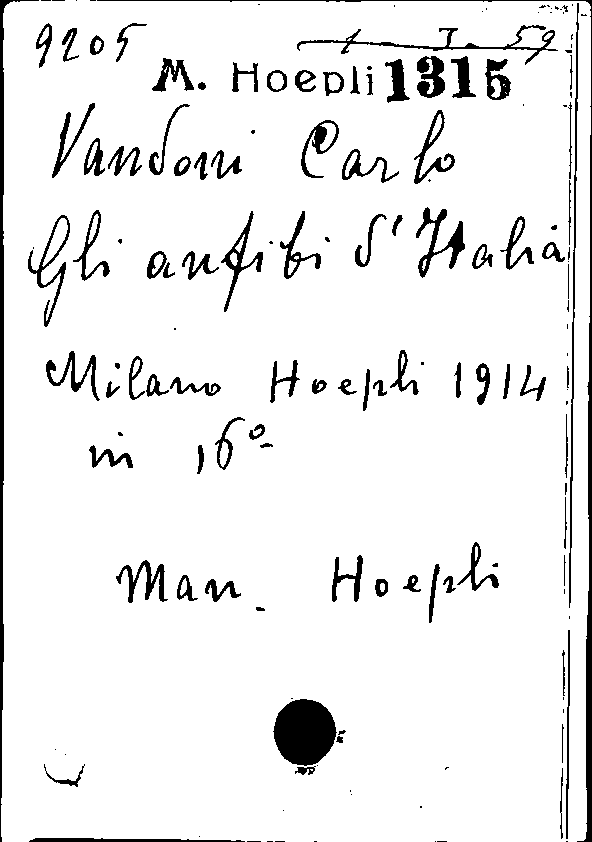 9205 1 I. 59
M. Hoepli 1315
Vandoni Carlo
Gli anfibi d'Italia
Milano Hoepli 1914
in 16º
Man. Hoepli